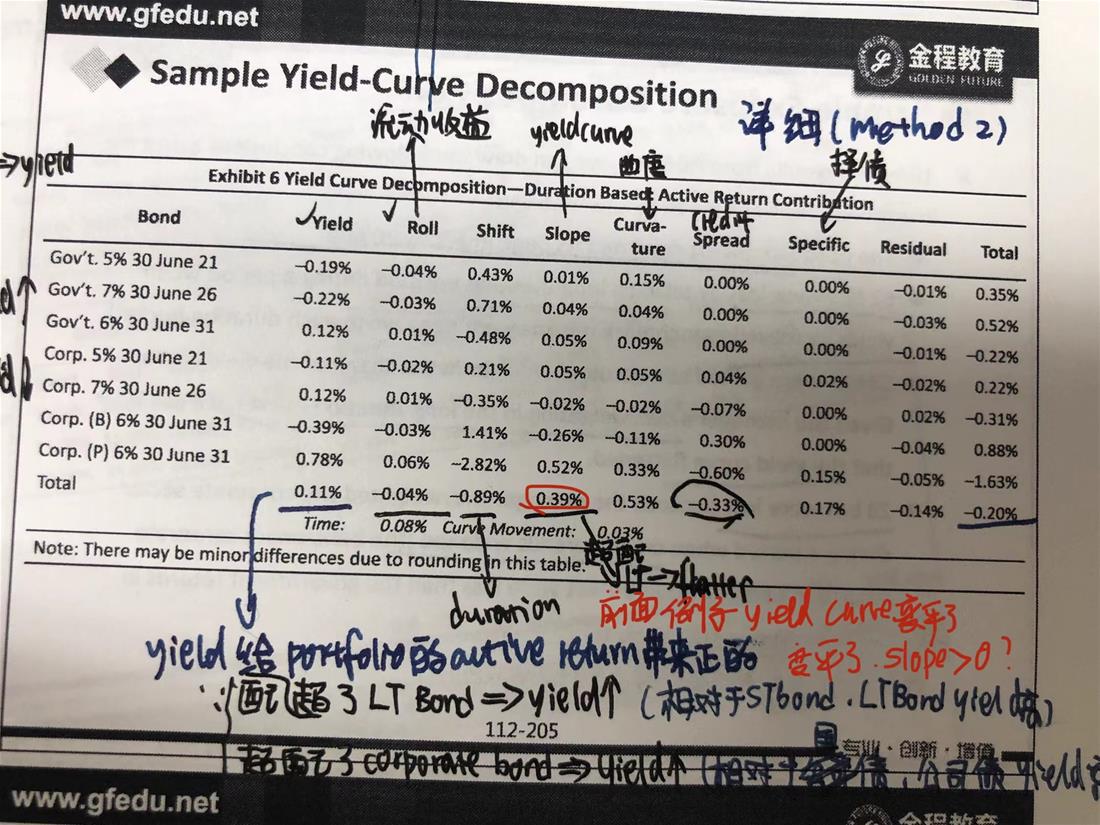 www.gfedu.net
金程教育
GOLDEN FUTURE
Sample Yield-Curve Decomposition
详细(method 2)
流动收益
yieldcurve
曲度
择债
⇒yield
Exhibit 6 Yield Curve Decomposition—Duration Based: Active Return Contribution
credit
Bond Yield Roll Shift Slope Curva-ture Spread Specific Residual Total
Gov't. 5% 30 June 21 −0.19% −0.04% 0.43% 0.01% 0.15% 0.00% 0.00% −0.01% 0.35%
Gov't. 7% 30 June 26 −0.22% −0.03% 0.71% 0.04% 0.04% 0.00% 0.00% −0.03% 0.52%
Gov't. 6% 30 June 31 0.12% 0.01% −0.48% 0.05% 0.09% 0.00% 0.00% −0.01% −0.22%
Corp. 5% 30 June 21 −0.11% −0.02% 0.21% 0.05% 0.05% 0.04% 0.02% −0.02% 0.22%
Corp. 7% 30 June 26 0.12% 0.01% −0.35% −0.02% −0.02% −0.07% 0.00% 0.02% −0.31%
Corp. (B) 6% 30 June 31 −0.39% −0.03% 1.41% −0.26% −0.11% 0.30% 0.00% −0.04% 0.88%
Corp. (P) 6% 30 June 31 0.78% 0.06% −2.82% 0.52% 0.33% −0.60% 0.15% −0.05% −1.63%
Total 0.11% −0.04% −0.89% 0.39% 0.53% −0.33% 0.17% −0.14% −0.20%
Time: 0.08% Curve Movement: 0.03%
Note: There may be minor differences due to rounding in this table.
超配
LT→flatter
duration
前面例子yield curve变平了
变平了.slope>0?
yield给portfolio的active return带来正的
∵配超了LT Bond⇒yield↑(相对于STbond.LTBond yield高)
112-205
专业·创新·增值
超配了corporate bond⇒yield↑(相对于国债,公司债yield
www.gfedu.net
金程教育